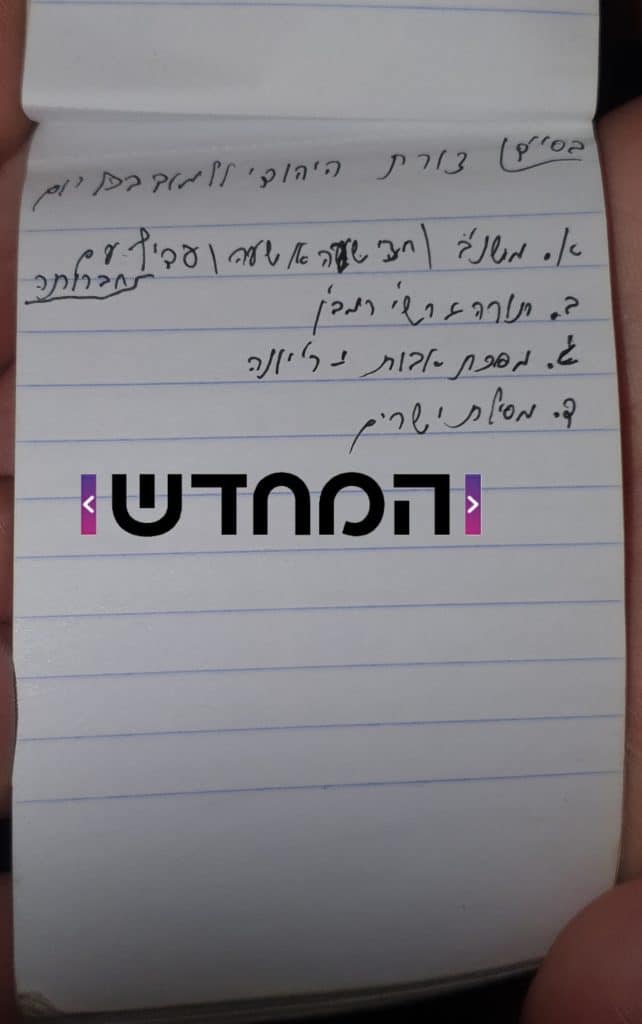 בס"ד צורת היהודי ללמוד בכל יום
א. משנ"ב \ חצי שעה או שעה \ עדיף עם חברותה
ב. תורה + רש"י רמב"ן
ג. מסכת אבות + ר' יונה
ד. מסילת ישרים
המחדש